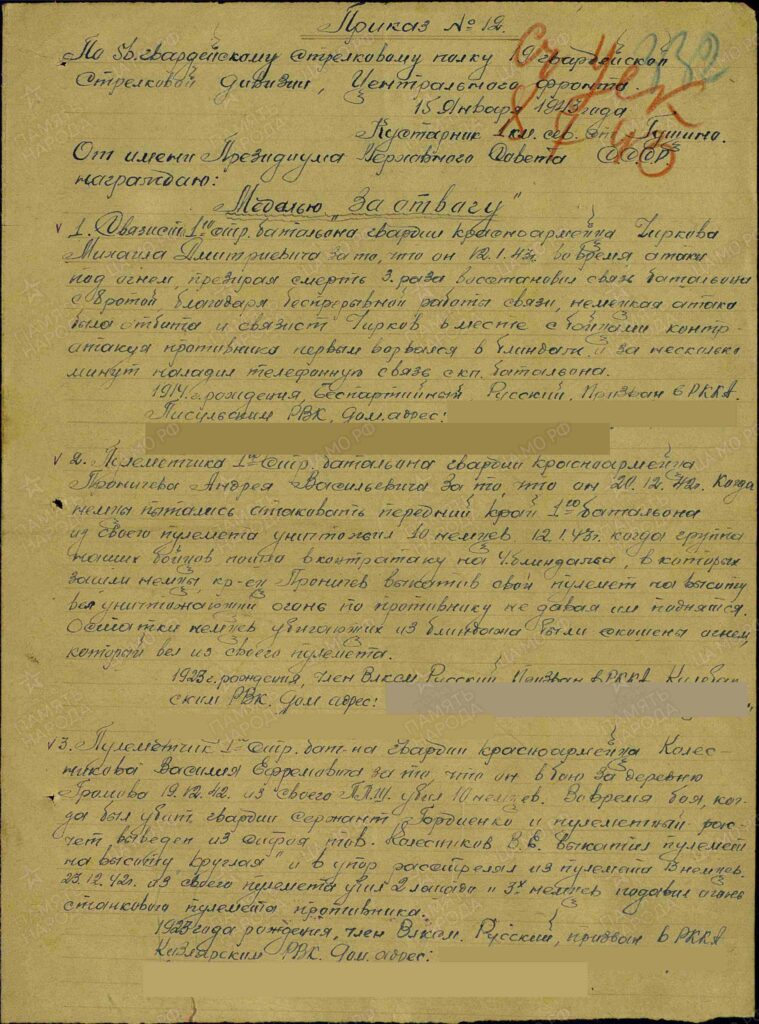 Приказ № 12.
По 56 гвардейскому стрелковому полку 19 гвардейской
стрелковой дивизии, Центрального фронта.
15 Января 1943 года
Кустарник 1 км. сев. Гушино.
От имени Президиума Верховного Совета СССР
награждаю:
Медалью "За отвагу"
1. Связист 1го стр. батальона гвардии красноармейца Чиркова
Михаила Дмитриевича за то, что он 12.1.43г. во время атаки
под огнем, презирая смерть 3 раза восстановил связь батальона
с 8 ротой благодаря беспрерывной работы связи, немецкая атака
была отбита и связист Чирков вместе с бойцами контр-
атакуя противника первым ворвался в блиндаж и за несколько
минут наладил телефонную связь с кп. батальона.
1914 г. рождения, беспартийный, Русский, Призван в РККА
РВК. Дом. адрес:
2. Пулеметчика 1го стр. батальона гвардии красноармейца
Проничева Андрея Васильевича за то, что он 20.12.42г. когда
немцы пытались атаковать передний край 1го батальона
из своего пулемета уничтожил 10 немцев. 12.1.43г. когда группа
наших бойцов пошла в контратаку на 4 блиндажа, в которых
засели немцы, кр-ец Проничев выкатив свой пулемет на высоту
вел уничтожающий огонь по противнику не давая им поднятся.
Остатки немцев убигающих из блиндажа были скошена огнем,
который вел из своего пулемета.
1923 г. рождения, член Влксм Русский Призван в РККА
ским РВК. Дом адрес:
3. Пулеметчик 1го стр. бат-на гвардии красноармейца Колес-
никова Василия Ефремовича за то, что он в бою за деревню
Громово 19.12.42. из своего П.П.Ш. убил 10 немцев. Во время боя, ког-
да был убит гвардии сержант Гордиенко и пулеметный рас-
чет выведен из строя тов. Колесников В.Е. выкатил пулемет
на высоту "Круглая" и в упор расстрелял из пулемета 8 немцев.
23.12.42г. из своего пулемета убил 2 лошади и 3х немцев подавил огонь
станкового пулемета противника.
1923 года рождения, член Влксм. Русский, призван в РККА
Кизлярским РВК. Дом. адрес: